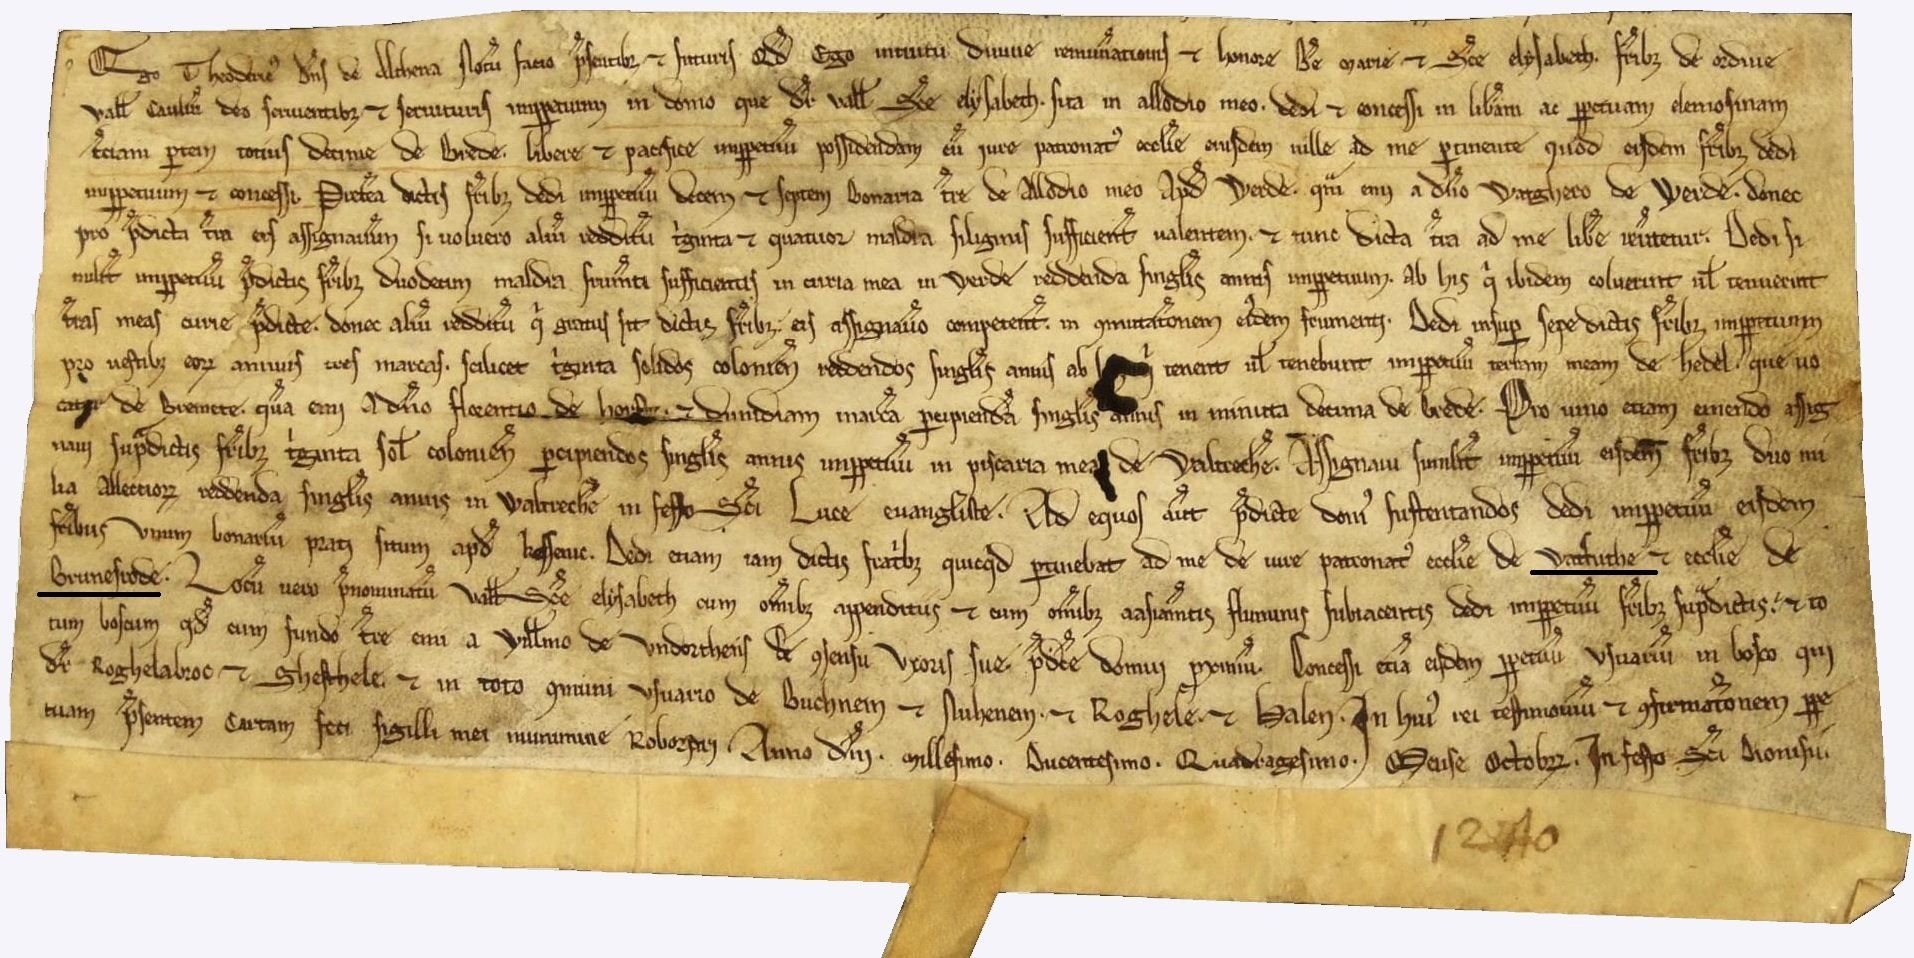 Ego Theoderic9 dns de Althena Notu facio psentibz ⁊ futuris qd Ego intuitu diuine remunationis ⁊ honore Be marie ⁊ Sce elysabeth. fribz de ordine
vall Cauliu deo seruientibz ⁊ seruituris impperuum in domo que dr vall Sce elysabeth. sita in allodio meo. dedi ⁊ concessi in libam ac ppetuam elemosinam
tciam ptem totius decime de Brede. libere ⁊ pacifice impperuu possidendam cu iure patronat9 ecclie eiusdem uille ad me ptinente quod eisdem fribz dedi
impperuum ⁊ concessi. Preterea dictis fribz dedi impperuu decem ⁊ septem bonaria tre de Allodio meo Apd Werde. qua emi a dno de Werde. donec
pro pdicta tra eis assignauum si uoluero aliu redditu tginta ⁊ quatuor maldra siliginis sufficient ualentem. ⁊ tunc dicta tra ad me libe reutetur. Dedi si
milit impperuu pdictis fribz duodecim maldra frumti sufficientis in curia mea in Werde reddenda singlis annis impperuum. Ab his q ibidem coluerint ul tenuerint
tras meas curie pdicte. donec aliu redditu q gratus sit dictis fribz. eis assignauo competent. in 9mutatonem eidem frumenti. Dedi insup sepe dictis fribz impperuum
pro uestibz eorz annuis tres marcas. scilicet tginta solidos colonien reddendos singlis annis ab tenent ul tenebunt impperuu terram meam de hedel. que uo
catur de Bremete. qua emi A dno florentio de ⁊ dimidiam marca percipienda singlis annis in minuta decima de brede. Pro uino etiam emendo assig
naui supdictis fribz tginta sol colonien pcipiendos singlis annis impperuu in piscaria mea de Waltreche. Assignaui similit impperuu eisdem fribz duo mi
lia Allectiorz reddenda singlis annis in Waltreche in festo Sci Luce euangliste. Ad equos aut pdicte dom9 sustentandos dedi impperuu eisdem
fribus Unum bonariu prati situm apd kessenic. Dedi etiam iam dictis fratbz quicqd ptinebat ad me de iure patronat9 ecclie de ⁊ ecclie de
Brunesrode. Locu uero pnominatu vall Sce elysabeth cum omibz appenditiis ⁊ cum omibz aasiamtis fluminis subiacentis dedi impperuu fribz supdictis. ⁊ to
tum boscum qd cum fundo tre emi a Willmo de de 9sensu Uxoris sue. pdicte domui pximu. Concessi etia eisdem ppetuu Usuariu in bosco qui
dr Roghelabroc ⁊ Ghesthele. ⁊ in toto 9muni usuario de Buchnem ⁊ Nuhenem. ⁊ Roghele. ⁊ Halen. In hui9 rei testimoniu ⁊ 9firmatonem ppe
tuam psentem Cartam feci sigilli mei munimine Roborari. Anno dni. Millesimo. Ducentesimo. Quadragesimo. Mense Octobrz. In festo Sci Dionisii.
1240